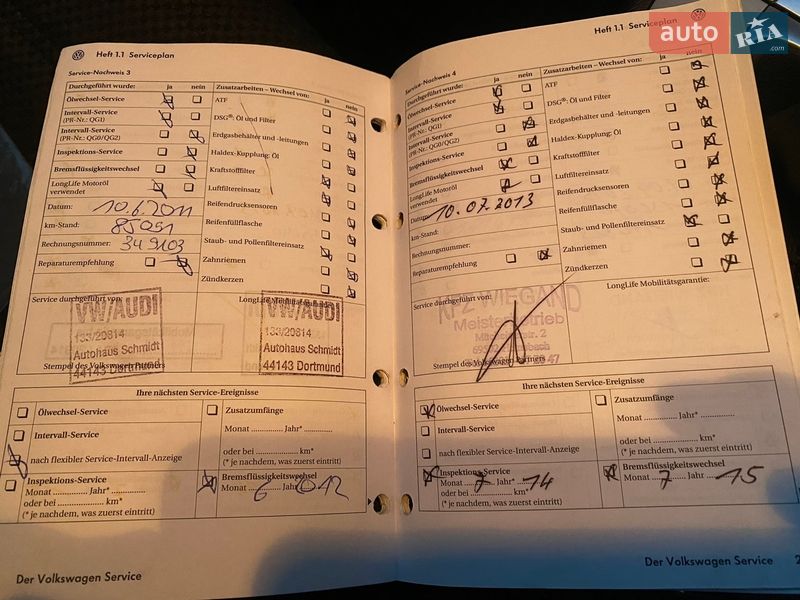 Heft 1.1 Serviceplan
Service-Nachweis 3
Durchgeführt wurde: ja nein
Ölwechsel-Service
Intervall-Service
(PR-Nr.: QG1)
Intervall-Service
(PR-Nr.: QG0/QG2)
Inspektions-Service
Bremsflüssigkeitswechsel
LongLife Motoröl
verwendet
Datum: 10.6.2011
km-Stand: 85051
Rechnungsnummer: 349103
Reparaturempfehlung
Zusatzarbeiten – Wechsel von: ja nein
ATF
DSG®: Öl und Filter
Erdgasbehälter und -leitungen
Haldex-Kupplung: Öl
Kraftstofffilter
Luftfiltereinsatz
Reifendrucksensoren
Reifenfüllflasche
Staub- und Pollenfiltereinsatz
Zahnriemen
Zündkerzen
Service durchgeführt von:
VW/AUDI
133/20814
Autohaus Schmidt
44143 Dortmund
Stempel des Volkswagen Partners
LongLife Mobilitätsgarantie:
VW/AUDI
133/20814
Autohaus Schmidt
44143 Dortmund
Ihre nächsten Service-Ereignisse
Ölwechsel-Service
Intervall-Service
nach flexibler Service-Intervall-Anzeige
Inspektions-Service
Monat ............ Jahr*
oder bei ............ km*
(* je nachdem, was zuerst eintritt)
Zusatzumfänge
Monat ............ Jahr*
oder bei ............ km*
(* je nachdem, was zuerst eintritt)
Bremsflüssigkeitswechsel
Monat 6 Jahr 012
Der Volkswagen Service
Heft 1.1 Serviceplan
auto RIA .com
Service-Nachweis 4
Durchgeführt wurde: ja nein
Ölwechsel-Service
Intervall-Service
(PR-Nr.: QG1)
Intervall-Service
(PR-Nr.: QG0/QG2)
Inspektions-Service
Bremsflüssigkeitswechsel
LongLife Motoröl
verwendet
Datum: 10.07.2013
km-Stand:
Rechnungsnummer:
Reparaturempfehlung
Zusatzarbeiten – Wechsel von: ja nein
ATF
DSG®: Öl und Filter
Erdgasbehälter und -leitungen
Haldex-Kupplung: Öl
Kraftstofffilter
Luftfiltereinsatz
Reifendrucksensoren
Reifenfüllflasche
Staub- und Pollenfiltereinsatz
Zahnriemen
Zündkerzen
Service durchgeführt von:
KFZ WIEGAND
Meisterbetrieb
Stempel des Volkswagen Partners
LongLife Mobilitätsgarantie:
Ihre nächsten Service-Ereignisse
Ölwechsel-Service
Intervall-Service
nach flexibler Service-Intervall-Anzeige
Inspektions-Service
Monat 7 Jahr* 14
oder bei ............ km*
(* je nachdem, was zuerst eintritt)
Zusatzumfänge
Monat ............ Jahr*
oder bei ............ km*
(* je nachdem, was zuerst eintritt)
Bremsflüssigkeitswechsel
Monat 7 Jahr 15
Der Volkswagen Service